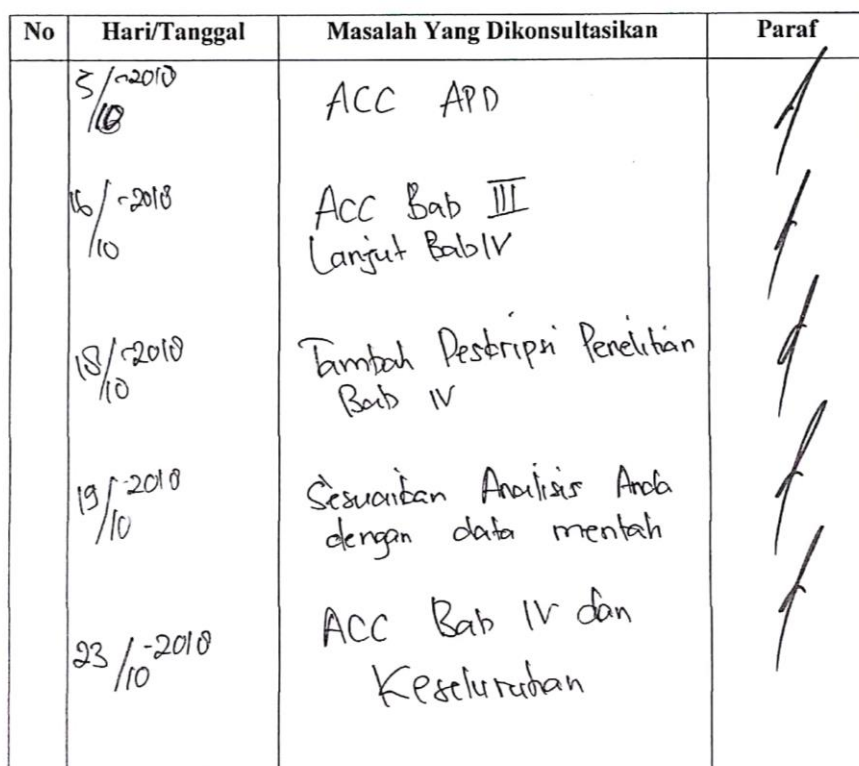 No Hari/Tanggal Masalah Yang Dikonsultasikan Paraf
5/10-2018 ACC APD
16/10-2018 ACC Bab III
Lanjut Bab IV
18/10-2018 Tambah Deskripsi Penelitian
Bab IV
19/10-2018 Sesuaikan Analisis Anda
dengan data mentah
23/10-2018 ACC Bab IV dan
Keseluruhan